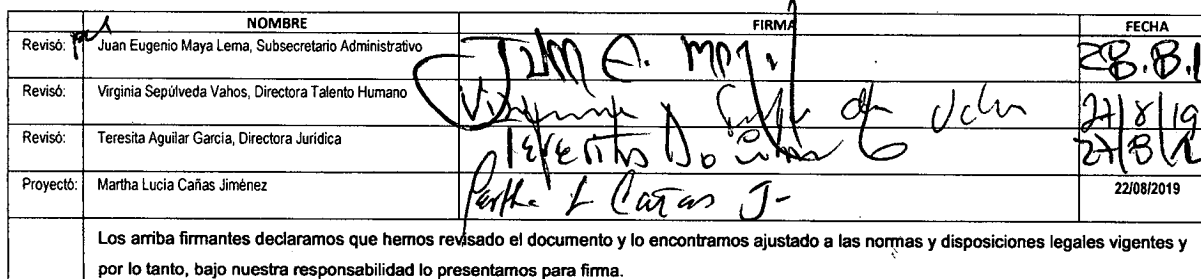 NOMBRE FIRMA FECHA
Revisó: Juan Eugenio Maya Lema, Subsecretario Administrativo Juan E. 28.8.1
Revisó: Virginia Sepúlveda Vahos, Directora Talento Humano 27/8/19
Revisó: Teresita Aguilar García, Directora Jurídica Teresita 27/8/1
Proyectó: Martha Lucia Cañas Jiménez Martha L Cañas J- 22/08/2019
Los arriba firmantes declaramos que hemos revisado el documento y lo encontramos ajustado a las normas y disposiciones legales vigentes y
por lo tanto, bajo nuestra responsabilidad lo presentamos para firma.